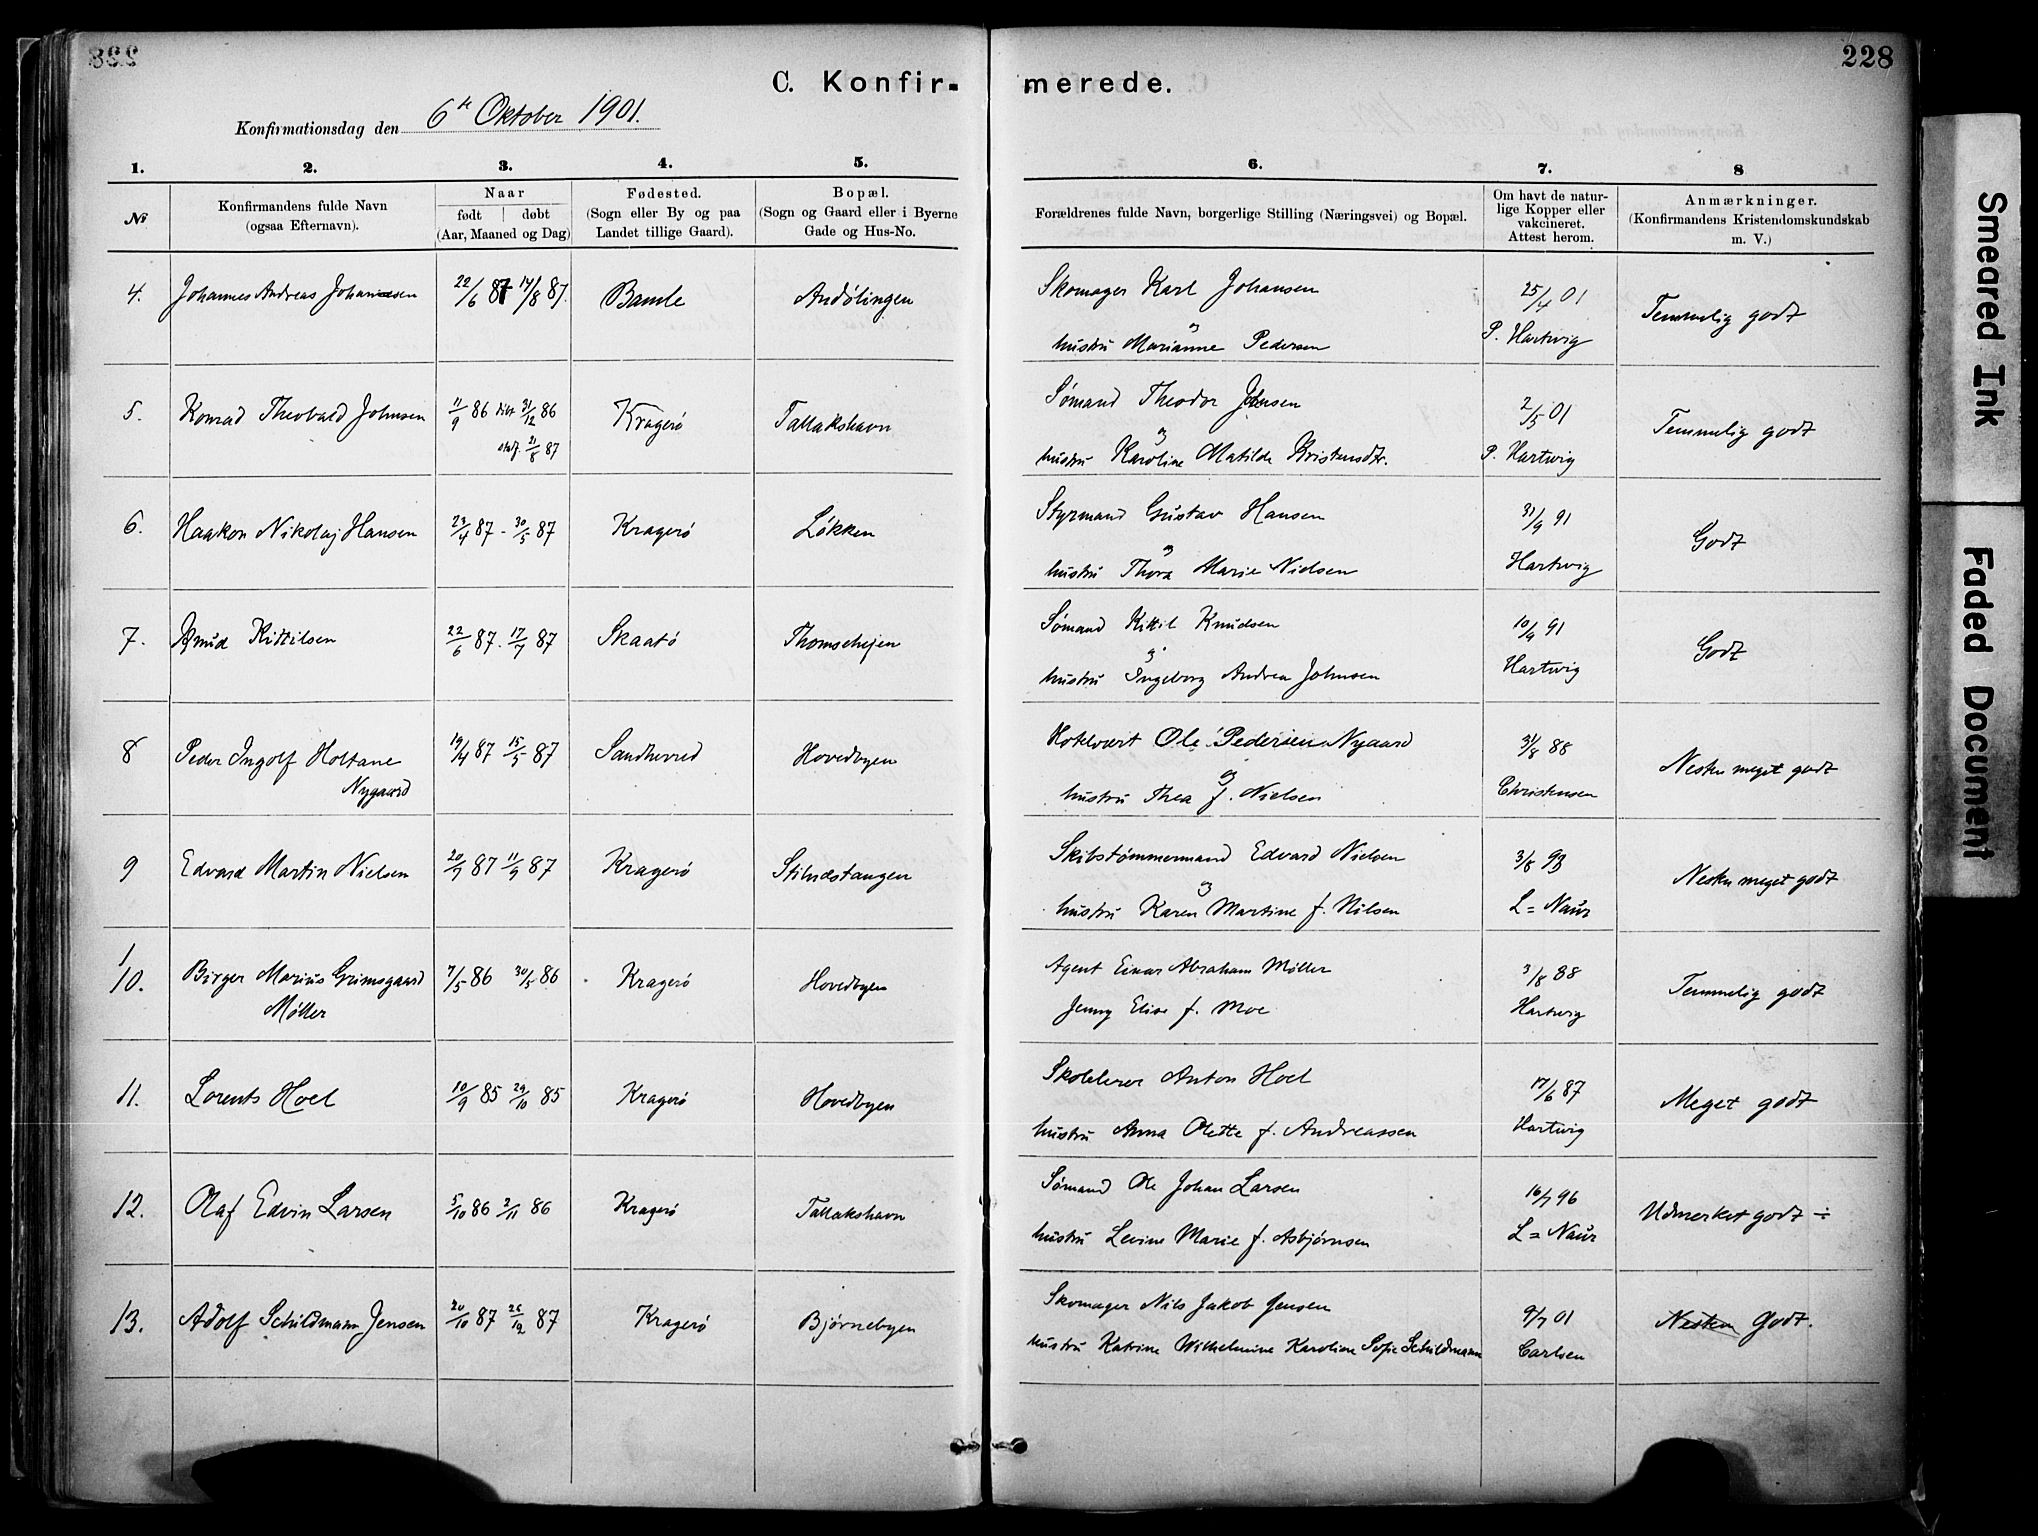 228
C. Konfirmerede.
Konfirmationsdag den 6te Oktober 1901.
1. 2. 3. 4. 5. 6. 7. 8
№ Konfirmandens fulde Navn (ogsaa Efternavn). Naar født døbt (Aar, Maaned og Dag) Fødested. (Sogn eller By og paa Landet tillige Gaard). Bopæl. (Sogn og Gaard eller i Byerne Gade og Hus-No. Forældrenes fulde Navn, borgerlige Stilling (Næringsvei) og Bopæl. Om havt de naturlige Kopper eller vakcineret. Attest herom. Anmærkninger. (Konfirmandens Kristendomskundskab m. V.)
4. Johannes Andreas Johansen 22/6 87 14/8 87. Bamle Andölingen Skomager Karl Johansen 25/4 01 Temmelig godt
og
hustru Marianne Pedersen P. Hartvig
5. Konrad Theobald Johnsen 11/9 86 31/12 86 Kragerö Tallakshavn Sömand Theodor Johnsen 2/5 01 Temmelig godt
21/8 87 og
hustru Karoline Matilde Kristensdtr. P. Hartwig
6. Haakon Nikolaj Hansen 23/4 87 - 30/5 87 Kragerö Lökken Styrmand Gustav Hansen 31/9 91 Godt
og
hustru Thora Marie Nielsen Hartvig
7. Knud Kittilsen 22/6 87 - 17/7 87 Skaatö Thomschejen Sömand Kittil Knudsen 10/9 91 Godt
og
hustru Ingeborg Andrea Johnsen Hartvig
8 Peder Ingolf Holtane 19/4 87 15/5 87 Sandherred Hovedbyen Hotelvært Ole Pedersen Nygaard 31/8 88 Nesten meget godt
Nygaard og
hustru Thea f. Nielsen Christensen
9 Edvard Martin Nielsen 20/7 87 11/9 87 Kragerö Stilnæstangen Skibstömmermand Edvard Nielsen 3/8 93 Nesten meget godt
og
hustru Karen Martine f. Nilsen L = Naur
10. Birger Marius Grimsgaard 7/5 86 30/5 86 Kragerö Hovedbyen Agent Einar Abraham Möller 3/8 88 Temmelig godt
Möller Jenny Elise f. Moe Hartvig
11. Lorents Hoel 10/9 85 29/10 85 Kragerö Hovedbyen Skolelærer Anton Hoel 17/6 87 Meget godt
hustru Anna Olette f. Andreassen Hartvig
12. Olaf Edvin Larsen 5/10 86 2/11 86 Kragerö Tallakshavn Sömand Ole Johan Larsen 16/7 96 Udmerket godt ÷
hustru Levine Marie f. Asbjörnsen L = Naur
13. Adolf Schildmann Jensen 20/10 87 26/12 87 Kragerö Björnebyen Skomager Nils Jakob Jensen 9/7 01 Nesten Godt.
hustru Katrine Wilhelmine Karoline Sofie Schildmann Carlsen
Smeared Ink
Faded Document